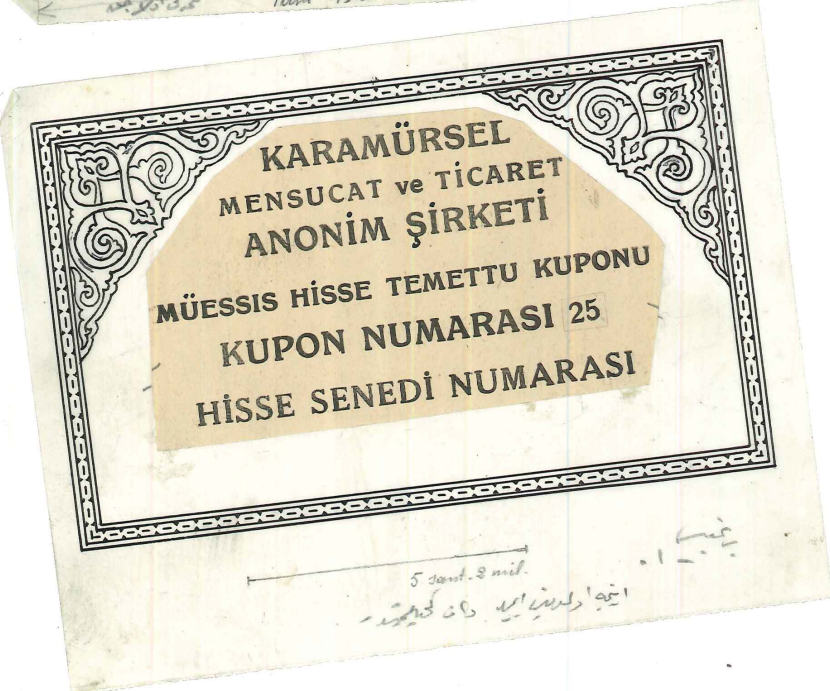 KARAMÜRSEL
MENSUCAT ve TİCARET
ANONİM ŞİRKETİ
MÜESSIS HİSSE TEMETTU KUPONU
KUPON NUMARASI 25
HİSSE SENEDİ NUMARASI
5 sant. 2 mil.